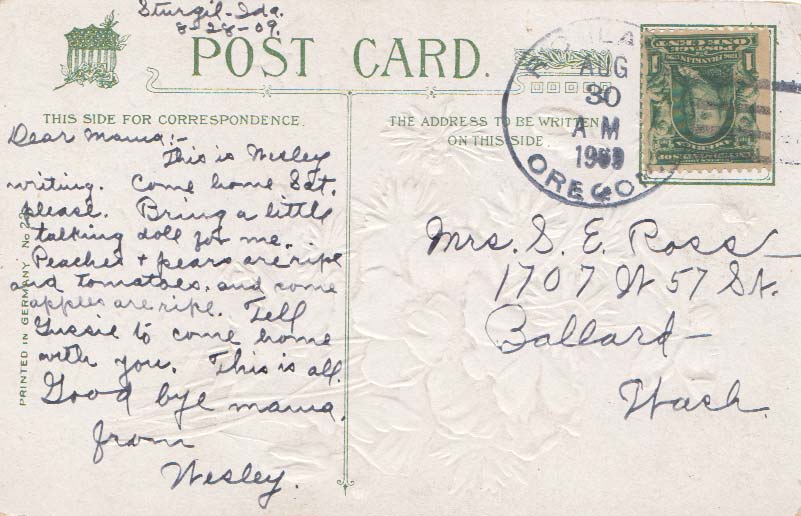 Sturgil-Ida.
8-28-09.
POST CARD.
THIS SIDE FOR CORRESPONDENCE.
Dear Mama:-
This is Wesley
writing. Come home Sat.
please. Bring a little
talking doll for me.
Peaches + pears are ripe
and tomatoes, and some
apples are ripe. Tell
Gussie to come home
with you. This is all.
Good bye mama.
from
Wesley.
PRINTED IN GERMANY No
THE ADDRESS TO BE WRITTEN
ON THIS SIDE.
AUG
30
A M
OREGON
Mrs. S. E. Ross
1707 W 57 St.
Ballard-
Wash.